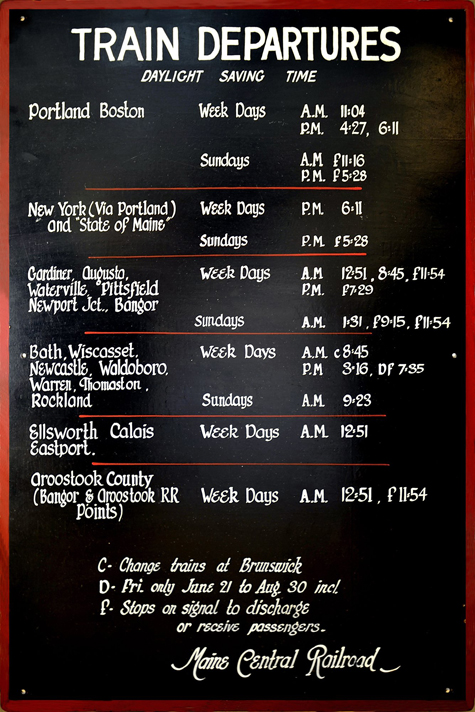 TRAIN DEPARTURES
DAYLIGHT SAVING TIME
Portland Boston Week Days A.M. 11:04
P.M. 4:27, 6:11
Sundays A.M f11:16
P.M. f5:28
New York (Via Portland) Week Days P.M. 6:11
and "State of Maine"
Sundays P.M. f5:28
Gardiner, Augusta, Week Days A.M 12:51, 8:45, f11:54
Waterville, Pittsfield P.M. f7:29
Newport Jct., Bangor
Sundays A.M. 1:31, f9:15, f11:54
Bath, Wiscasset, Week Days A.M. c8:45
Newcastle, Waldoboro, P.M 3:16, Df 7:35
Warren, Thomaston,
Rockland Sundays A.M. 9:23
Ellsworth Calais Week Days A.M. 12:51
Eastport.
Aroostook County
(Bangor & Aroostook RR Week Days A.M. 12:51, f11:54
Points)
C- Change trains at Brunswick
D- Fri. only June 21 to Aug. 30 incl
f- Stops on signal to discharge
or receive passengers.
Maine Central Railroad